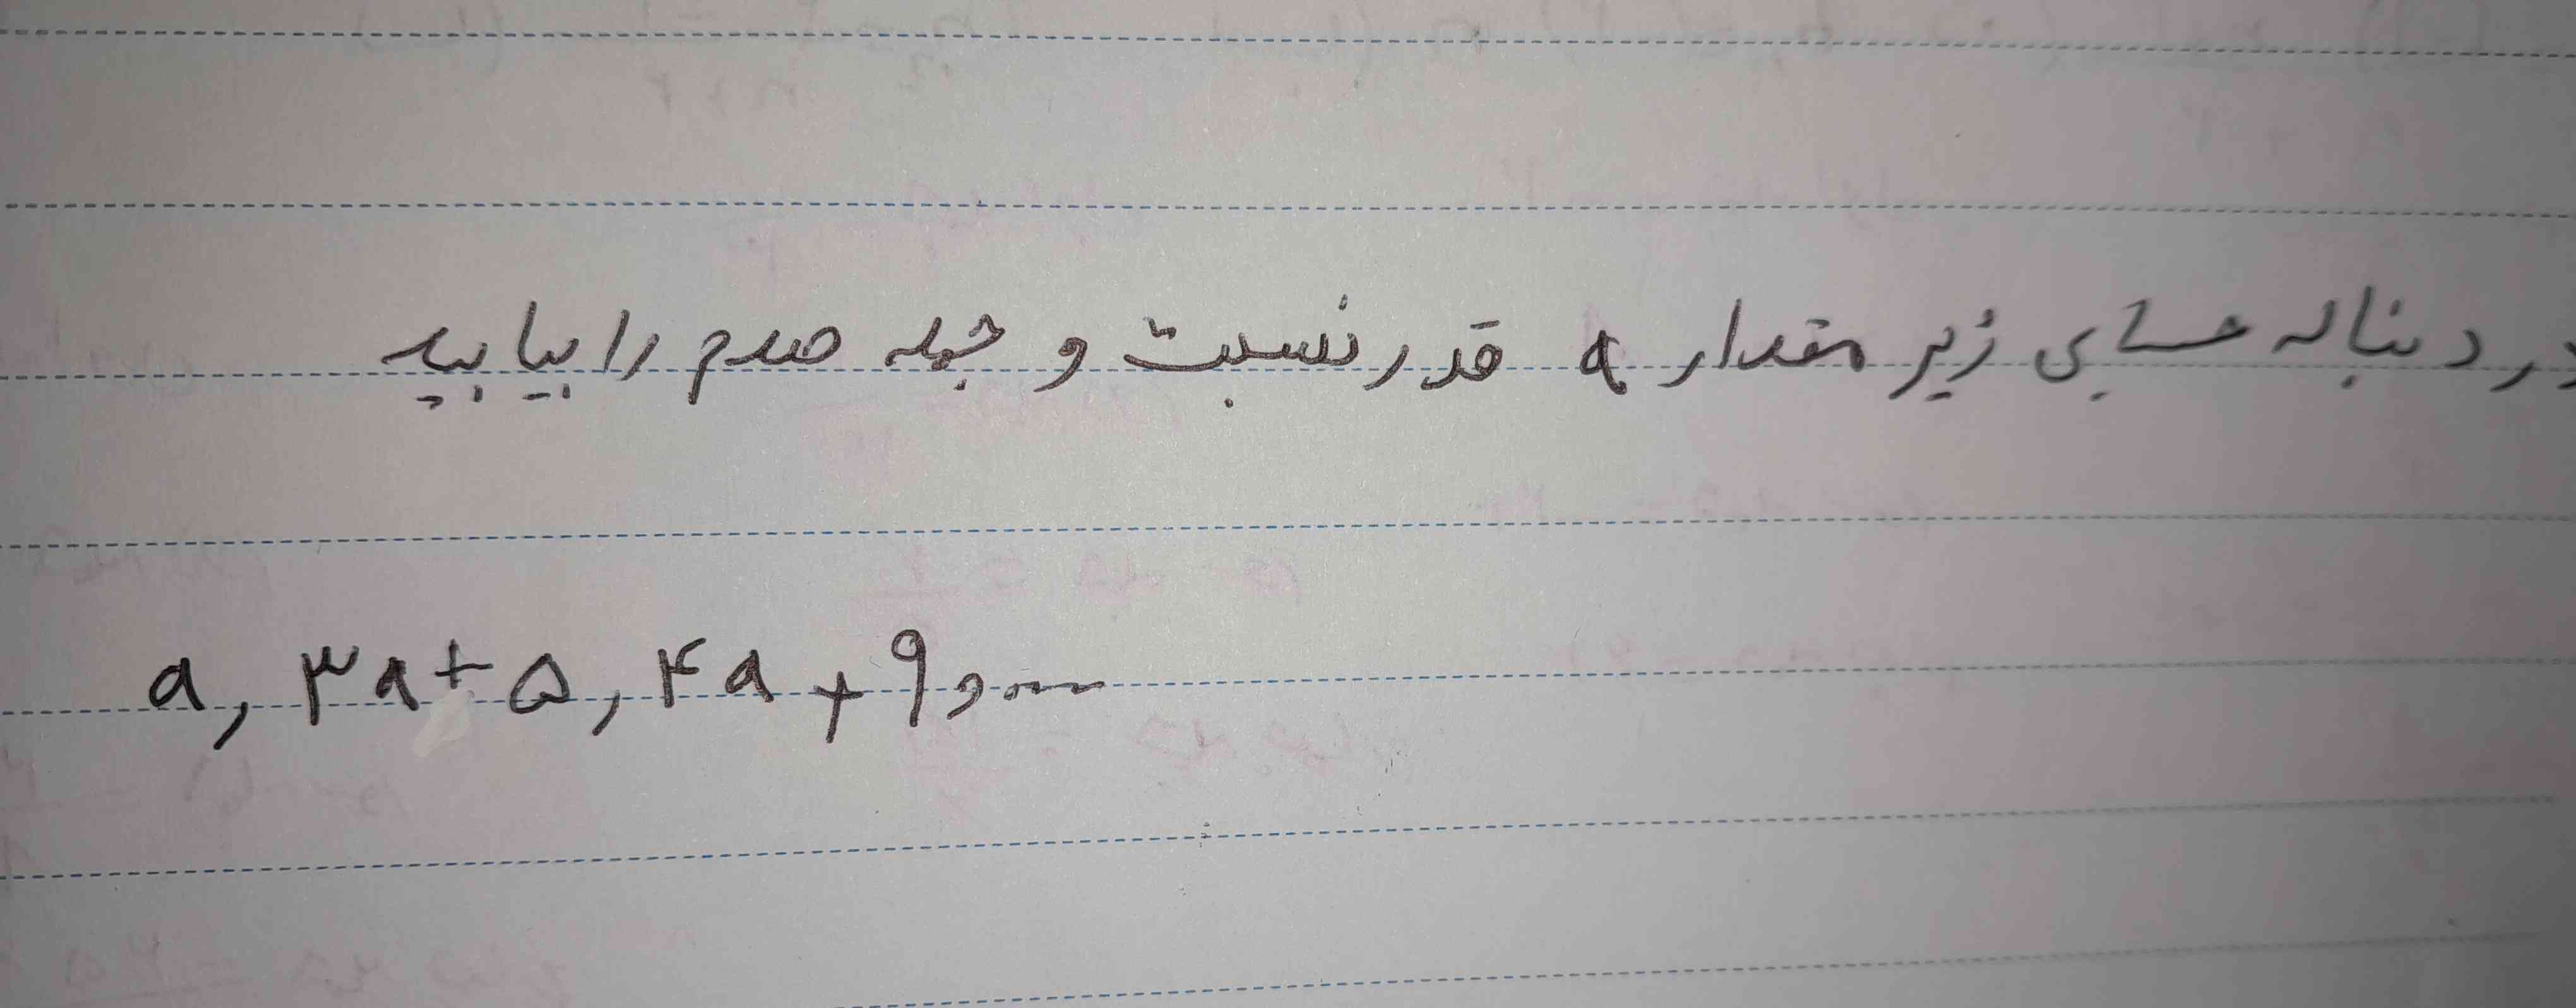 در دنباله حسابی زیر مقدار a قدر نسبت و جمله صدم را بیابید
a, ۳a+۵, ۴a+۹, ...